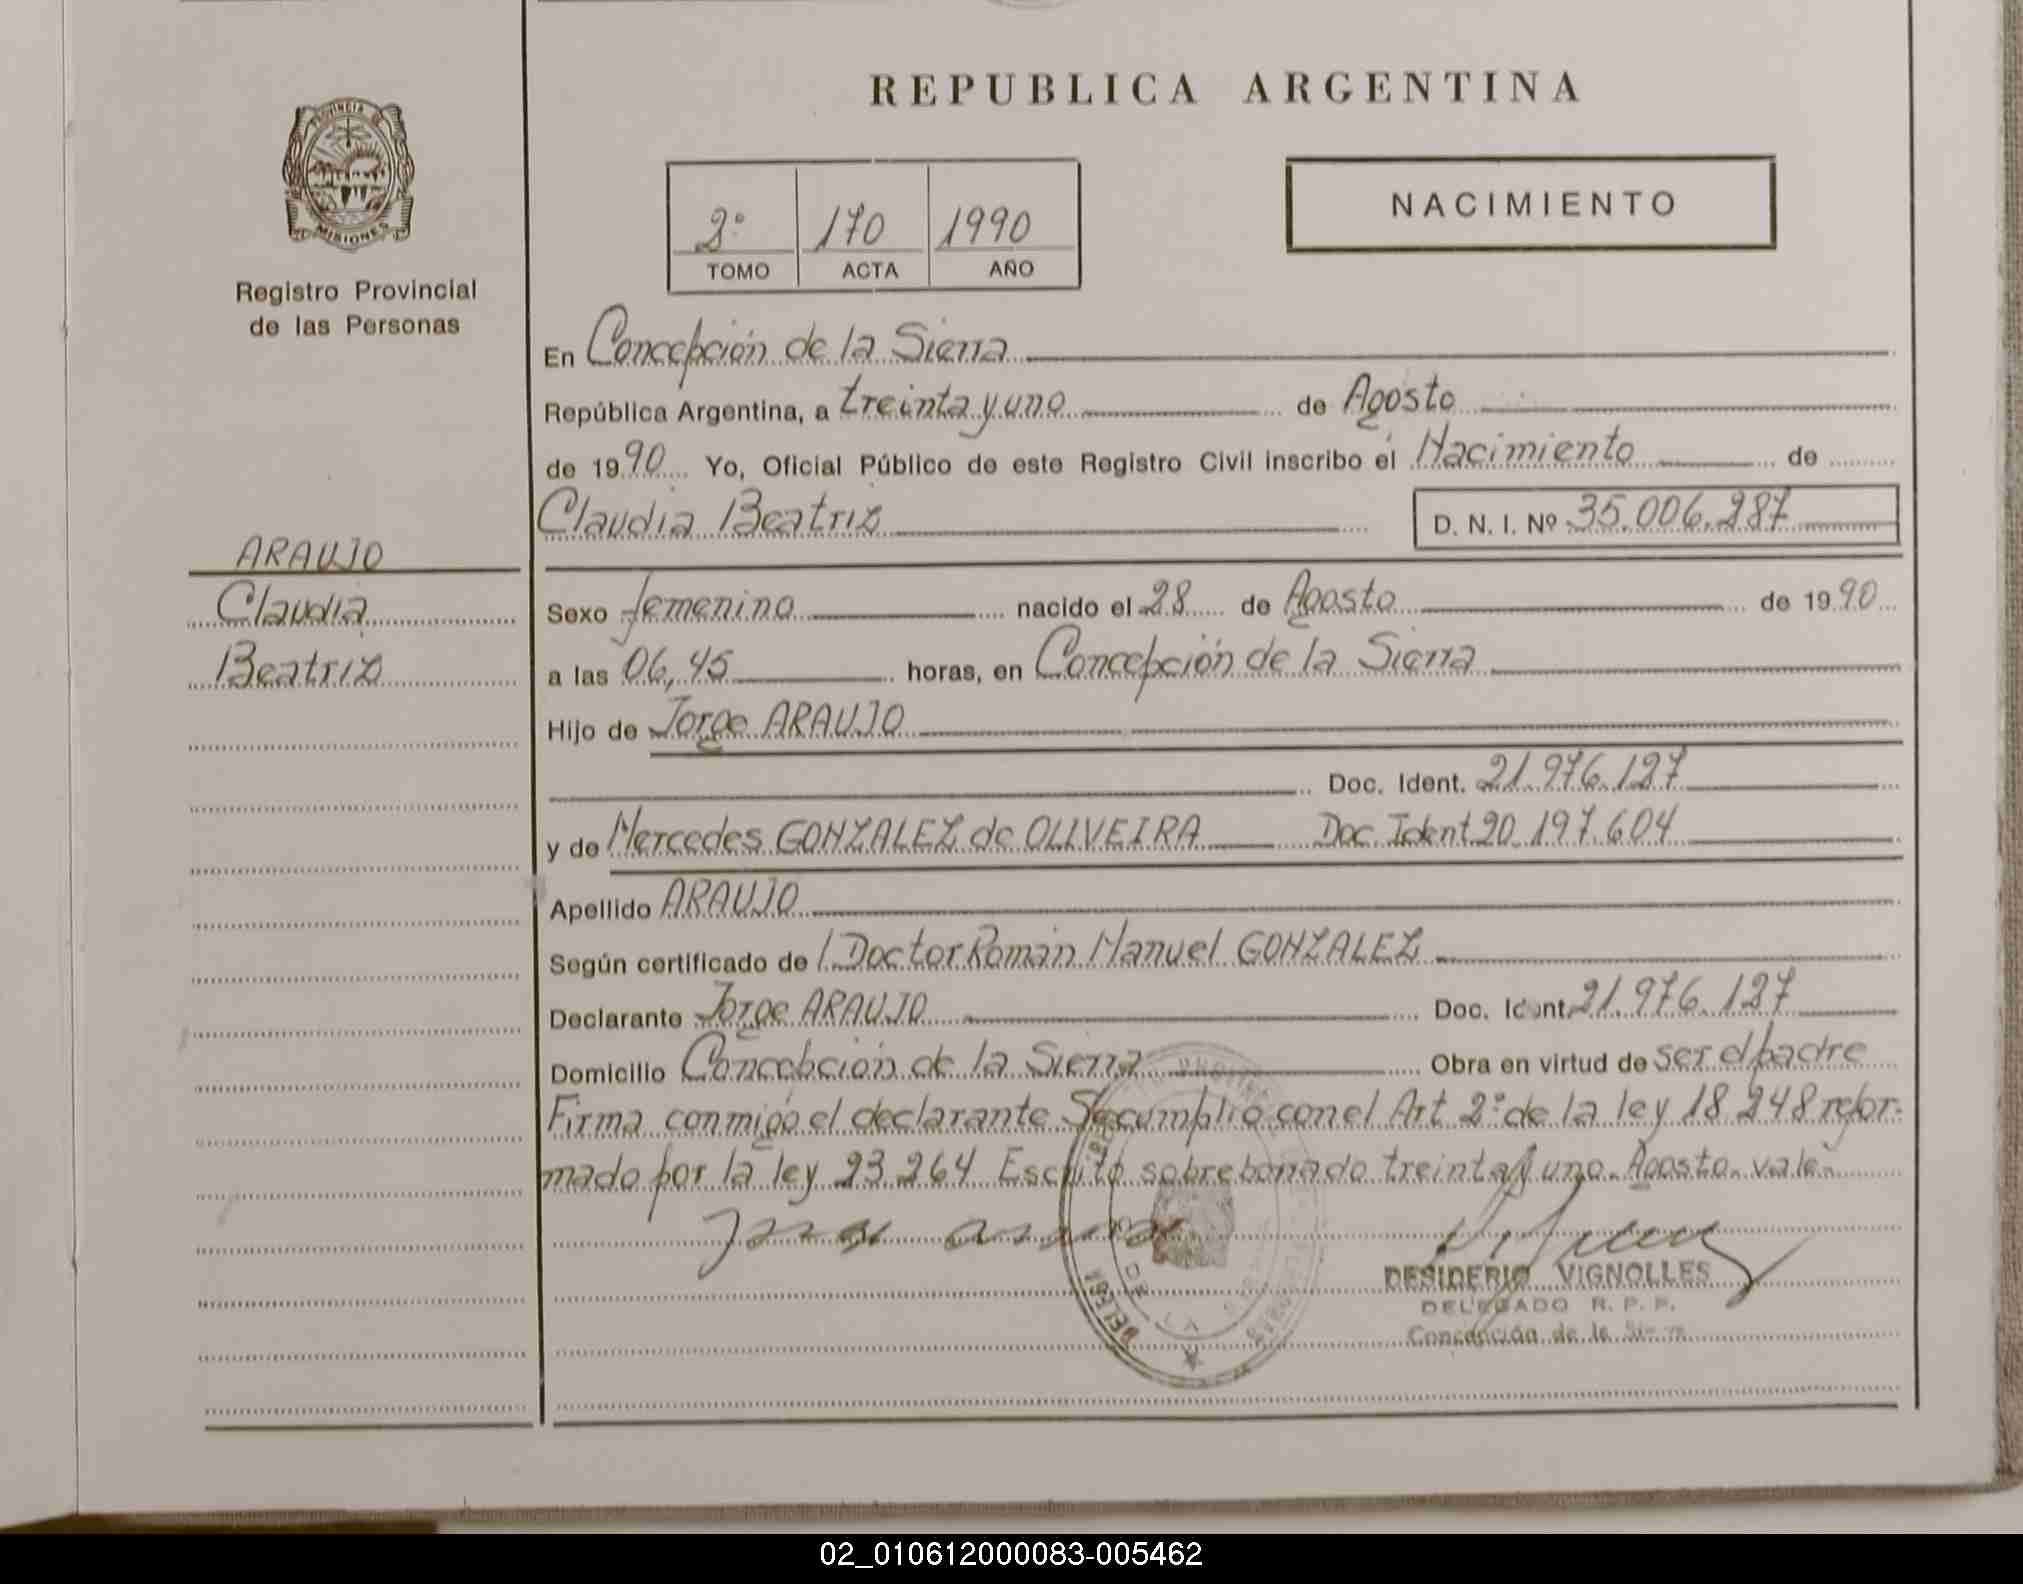 REPUBLICA ARGENTINA
PROVINCIA DE
MISIONES
Registro Provincial
de las Personas
2º 170 1990
TOMO ACTA AÑO
NACIMIENTO
En Concepción de la Sierra
República Argentina, a treinta y uno de Agosto
de 1990 Yo, Oficial Público de este Registro Civil inscribo el Nacimiento de
Claudia Beatriz D. N. I. Nº 35.006.287
ARAUJO
Claudia
Beatriz
Sexo femenino nacido el 28 de Agosto de 1990
a las 06,45 horas, en Concepción de la Sierra
Hijo de Jorge ARAUJO
Doc. Ident. 21.976.127
y de Mercedes GONZALEZ de OLIVEIRA Doc. Ident 20.197.604
Apellido ARAUJO
Según certificado de l Doctor Román Manuel GONZALEZ
Declarante Jorge ARAUJO Doc. Ident. 21.976.127
Domicilio Concepción de la Sierra Obra en virtud de ser el padre
Firma conmigo el declarante Se cumplio con el Art 2º de la ley 18 248 refor-
mado por la ley 23.264 Escrito sobreborrado treinta y uno. Agosto. vale.
DE LA
DESIDERIO VIGNOLLES
DELEGADO R. P. P.
Concepción de la Sierra
02_010612000083-005462